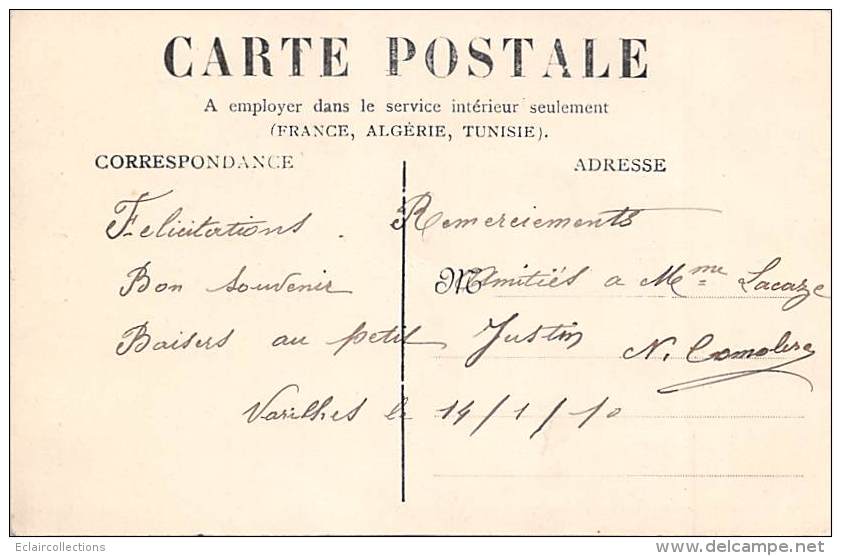 CARTE POSTALE
A employer dans le service intérieur seulement
(FRANCE, ALGÉRIE, TUNISIE).
CORRESPONDANCE ADRESSE
Felicitations. Remerciements
Bon souvenir M Amitiés a Mme Lacaze
Baisers au petit Justin N.
Varilhes le 14/1/10
Eclaircollections
http://www.delcampe.net